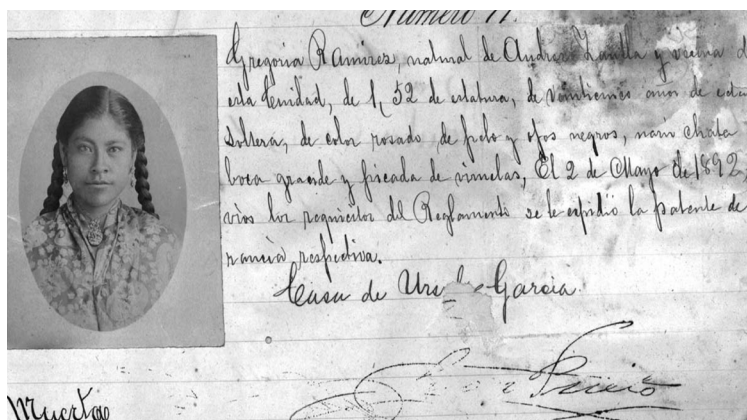 Número 11.
Gregoria Ramirez, natural de Andres y vecina d
esta Ciudad, de 1, 52 de estatura, de veintiun años de eda
soltera, de color rosado, de pelo y ojos negros, nariz chata
boca grande y picada de viruelas, El 2 de Mayo de 1892,
vios los requisitos del Reglamento se le expidió la patente de
rancia respectiva.
Casa de García
Muerta